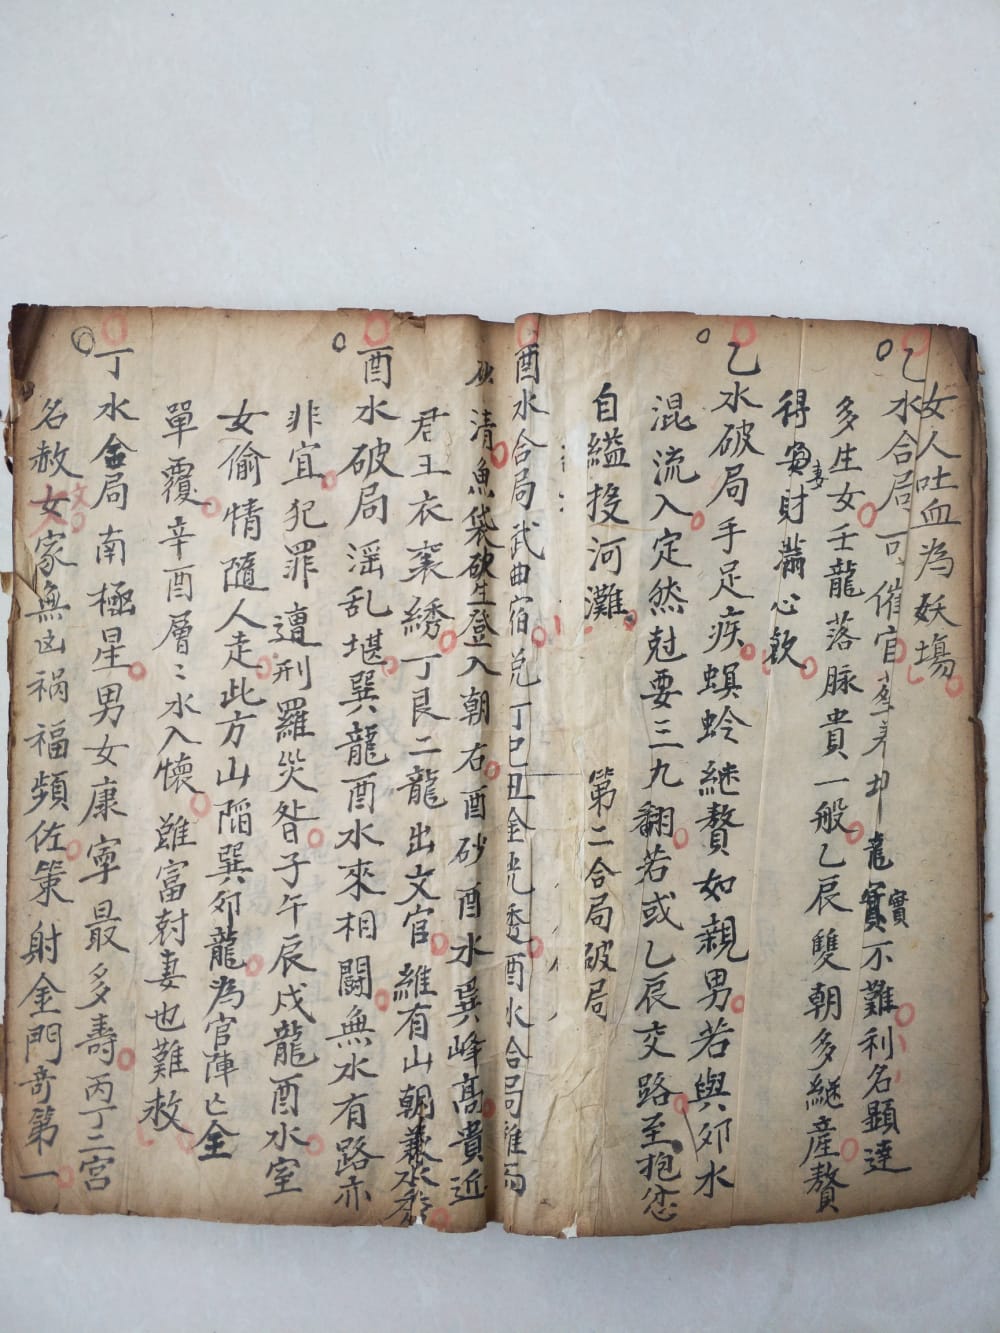 女人吐血為妖塲
乙水合局可催官
龍實不難利名顯達
多生女壬龍落脉貴一般乙辰雙朝多継産贅
得妻財滿心歡
乙水破局手足疾螟蛉継贅如親男若與夘水
混流入定然尅要三九翻若或乙辰交路至抱
自縊投河灘
第二合局破局
酉水合局武曲宿兊丁巳丑金酉水合局
清魚袋砂生登入朝右酉砂酉水異峰髙貴近
君王衣裳綉丁艮二龍出文官維有山朝兼水秀
酉水破局滛乱堪巽龍酉水來相鬪無水有路亦
非宜犯罪遭刑羅災眚子午辰戌龍酉水室
女偷情隨人走此方山陷巽夘龍為官陣亡全
單覆辛酉層〻水入懷雖富尅妻也難救
丁水合局南極星男女康寕最多壽丙丁二宫
名赦文家無凶禍福頻佐策射金門竒第一